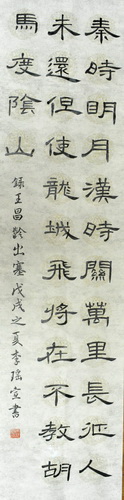 秦時明月漢時關萬里長征人
未還但使龍城飛將在不教胡
馬度陰山
錄王昌齡出塞戊戌之夏李瑶宣書